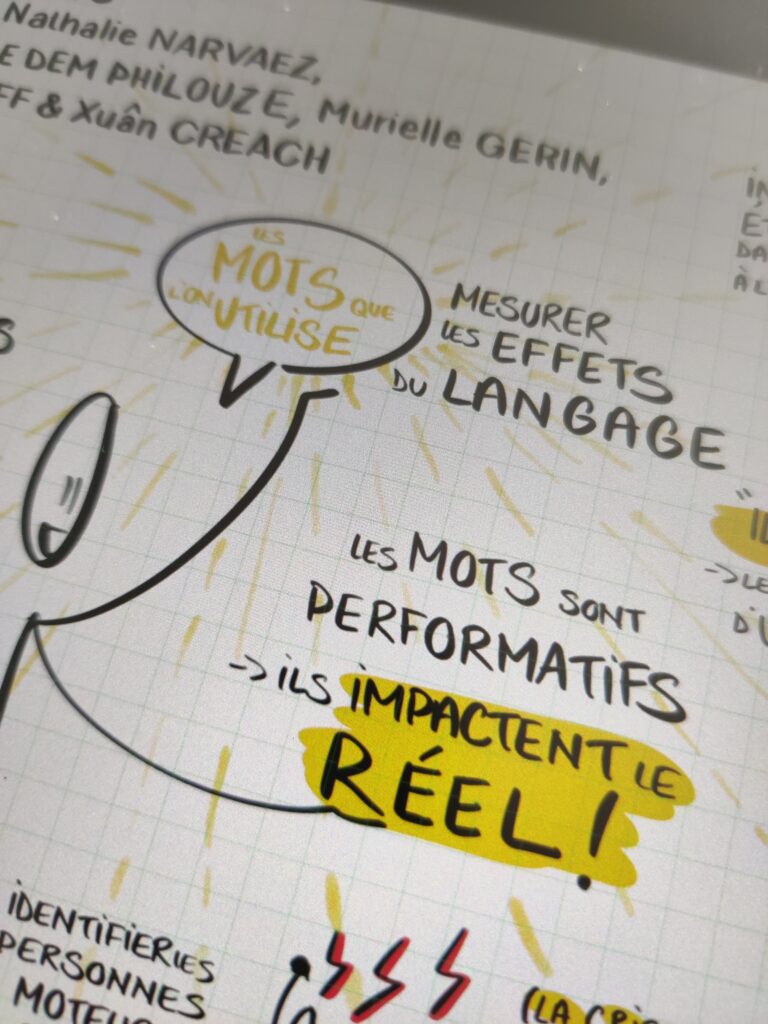 Nathalie NARVAEZ,
E DEM PHILOUZE, Murielle GERIN,
FF & Xuân CREACH
LES
MOTS QUE
L'ON UTILISE
MESURER
LES EFFETS
DU LANGAGE
LES MOTS SONT
PERFORMATIFS
-> ILS IMPACTENT LE
RÉEL !
IDENTIFIER LES
PERSONNES
MOTEU
(LA CRI